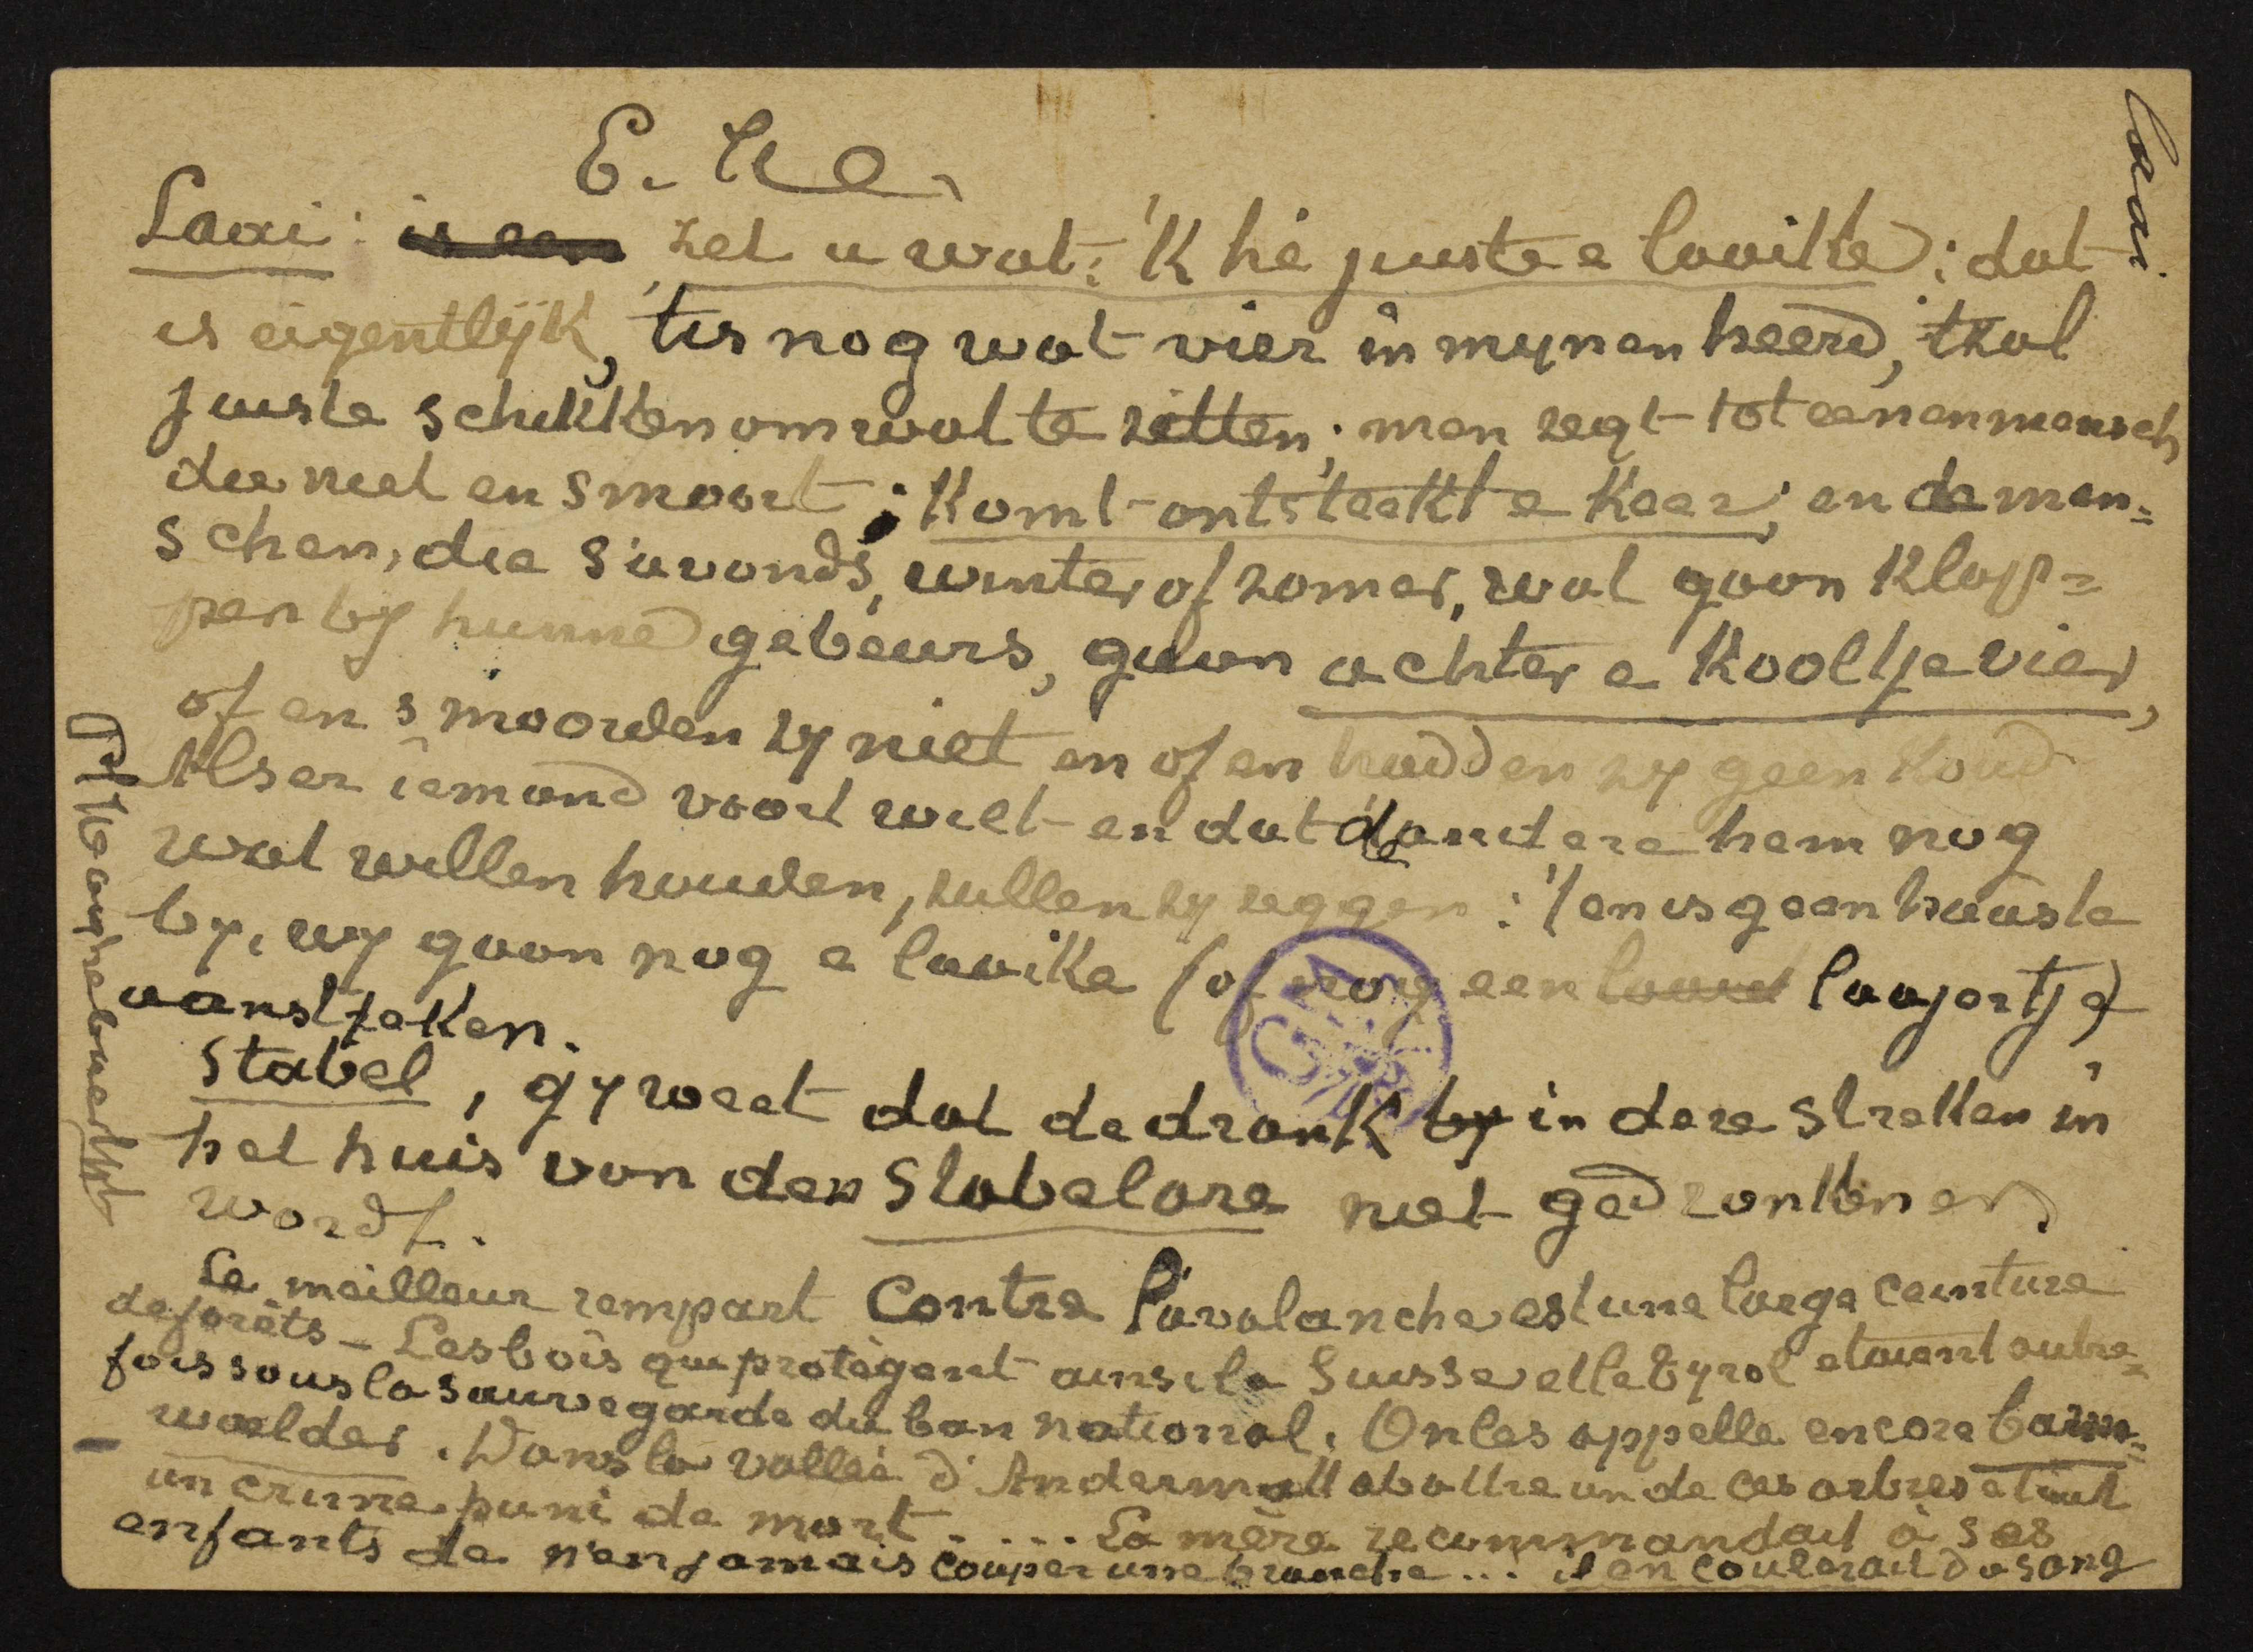 E. He.
laai
Laai: is een zet u wat: 'K hè juste e laaikke: dat
is eigentlÿk, 'tis nog wat vier in mynen heerd, 'tzal
juste schikken om wat te zitten; men zegt tot eenen mensch
die niet en smoort: Komt ontsteekt e keer; en de men=
schen, die s'avonds, winter of zomer, wat gaan klap=
pen by hunne gebeurs, gaan achter e kooltje vier,
of en smoorden zy niet en of en hadden zy geen koud
Als er iemand voort wilt en dat de andere hem nog
wat willen houden, zullen zy zeggen: 't en is geen haaste
by, wy gaan nog e laaike (of nog een laaie laajortje)
aanstjeken.
Stabel, gy weet dat de drank by in deze stretken in
het huis van den Stabelare niet gedronken en
wordt.
Le meilleur rempart contre l'avalanche est une large ceinture
de forêts - Les bois qui protègent ainsi la Suisse et le Tyrol etaient autre=
fois sous la sauvegarde du ban national. On les appelle encore bann=
wælder. Dans la vallée d'Andermatt abattre un de ces arbres etait
un crime puni de mort.... La mère recommandait à ses
enfants de n'en jamais couper une branche... il en coulerait du sang